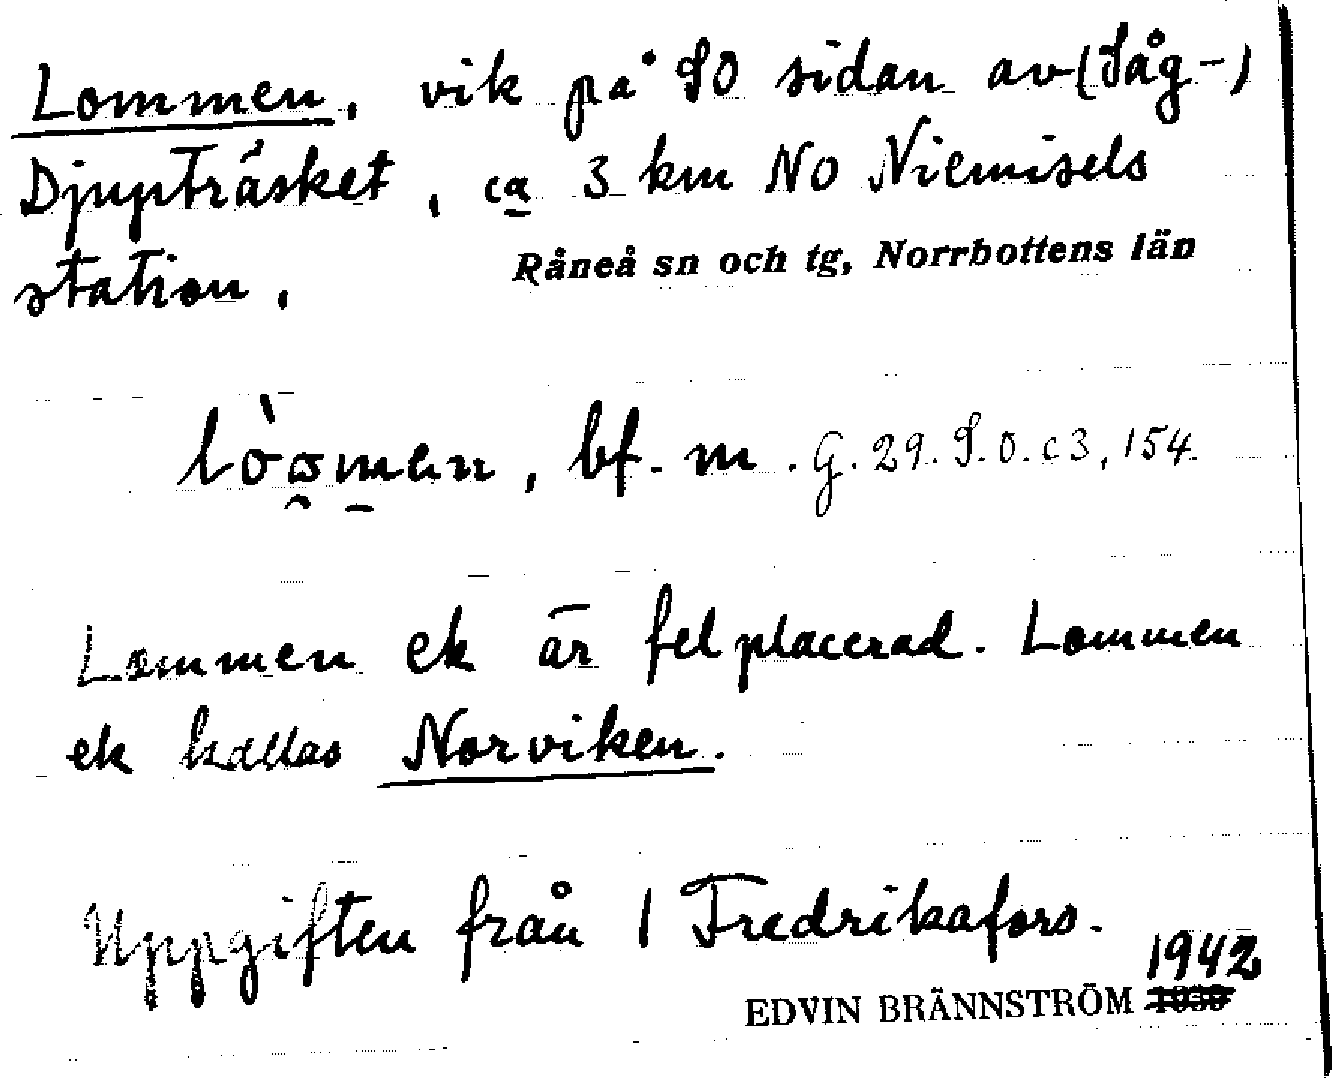 Lommen, vik på SO sidan av (Såg-)
Djupträsket, ca 3 km NO Niemisels
station.
Råneå sn och tg, Norrbottens län
lòo̯m̱en, bf. m. G. 29. S. O. c 3, 154.
Lommen ek är felplacerad. Lommen
ek kallas Norviken.
Uppgiften från 1 Fredrikafors.
1942
EDVIN BRÄNNSTRÖM 1939